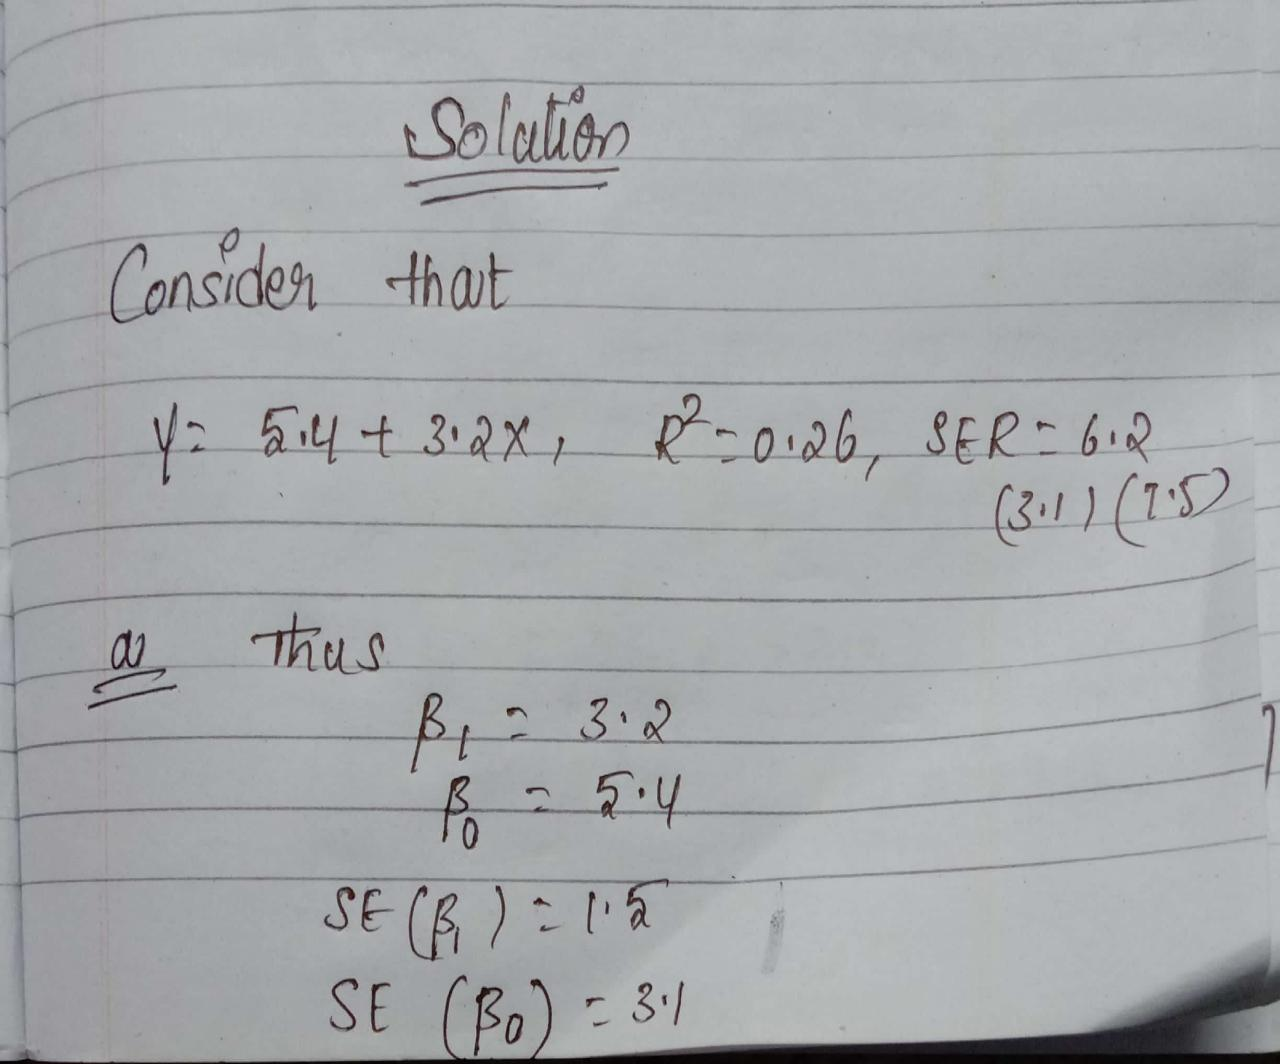 Solution
Consider that
Y = 5.4 + 3.2X, R² = 0.26, SER = 6.2
(3.1) (1.5)
a) Thus
β₁ = 3.2
β₀ = 5.4
SE (β₁) = 1.5
SE (β₀) = 3.1